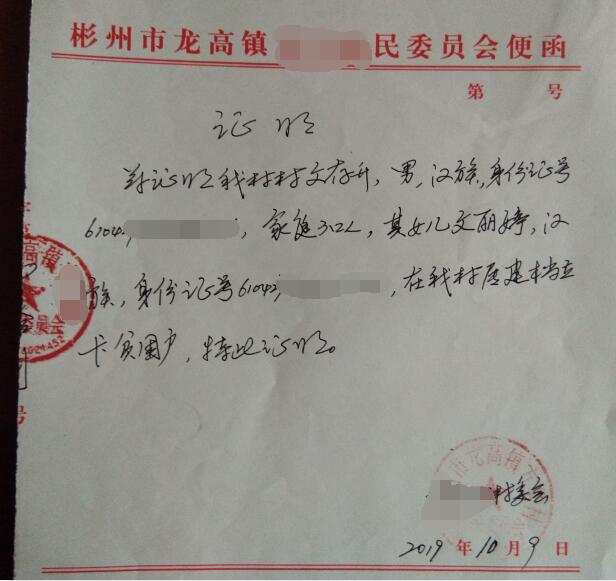 彬州市龙高镇 民委员会便函
第 号
证明
兹证明我村村文存升，男，汉族，身份证号
61042，家庭3口人，其女儿文丽婷，汉
族，身份证号61042，在我村居建档立
卡贫困户，特此证明。
高镇
委员会
号
市龙高镇
村委会
2019年10月9日